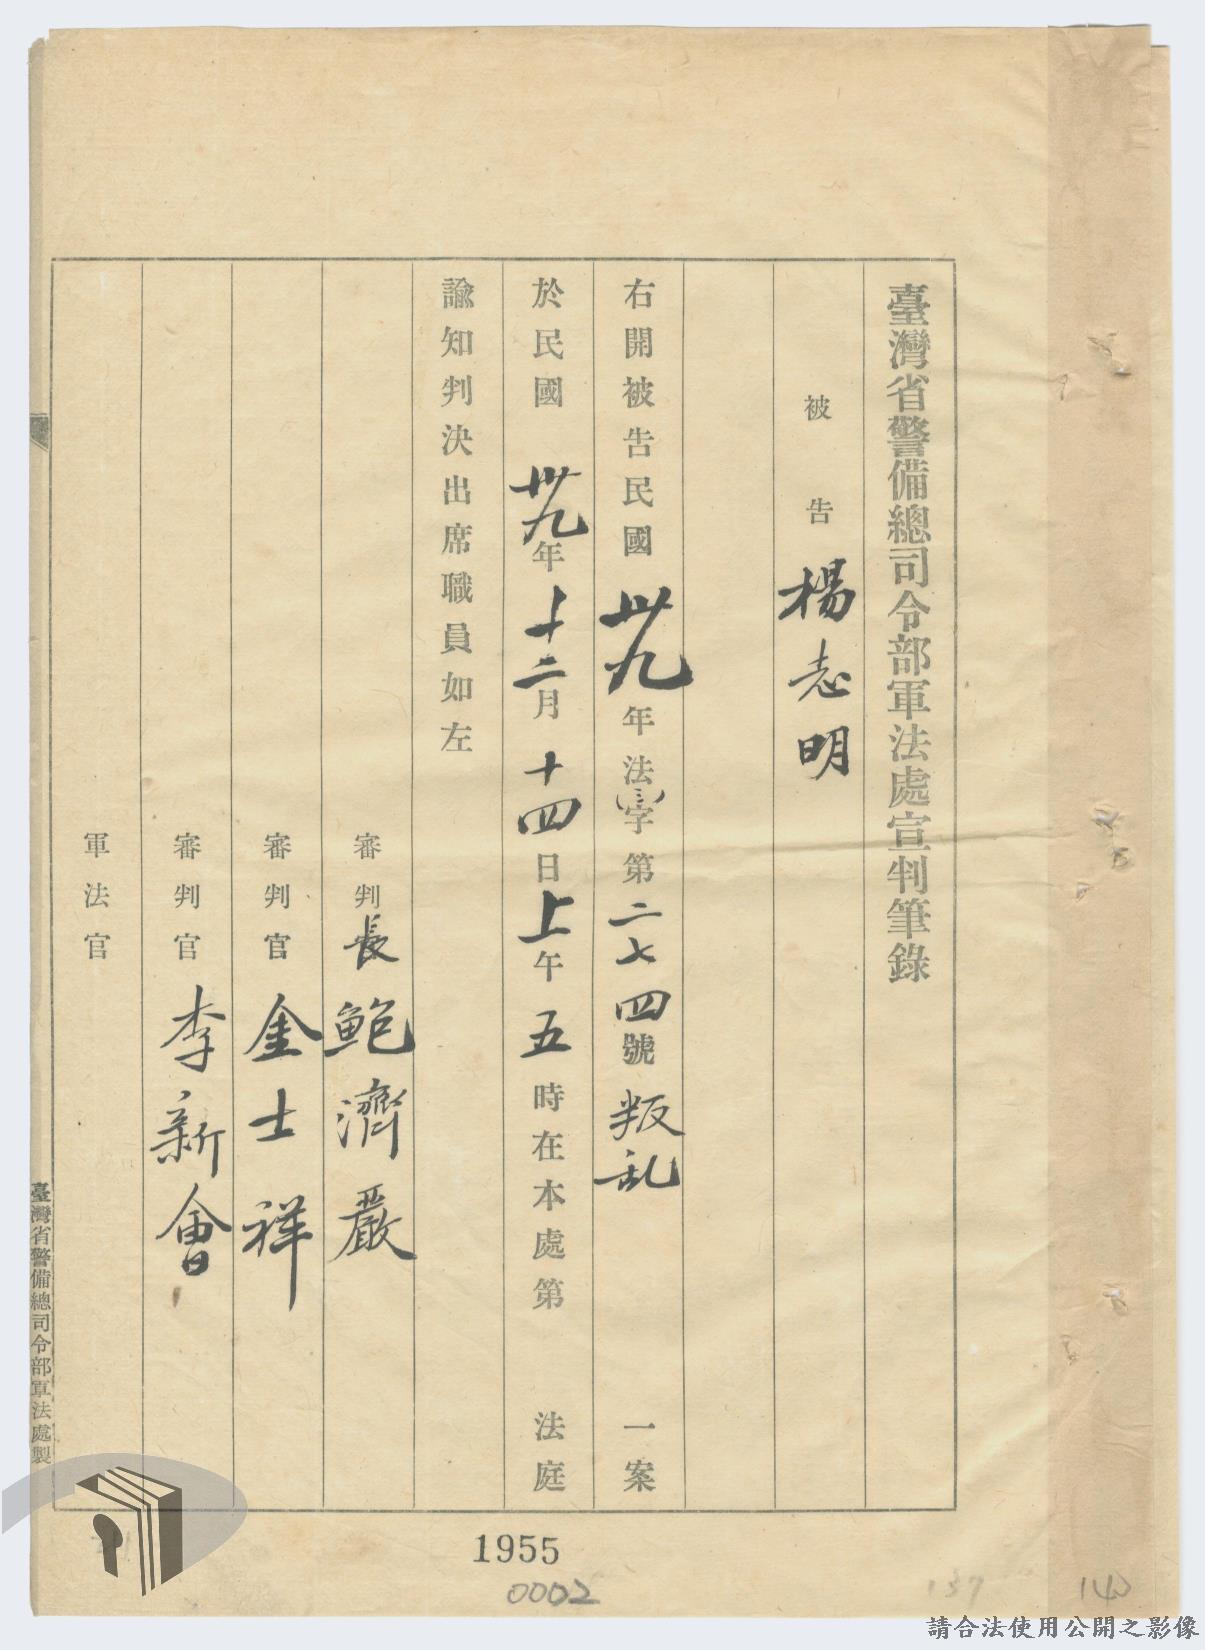 臺灣省警備總司令部軍法處宣判筆錄
被告 楊志明
右開被告民國卅九年法(三)字第二七四號叛乱一案
於民國卅九年十二月十四日上午五時在本處第 法庭
諭知判決出席職員如左
審判長 鮑濟嚴
審判官 金士祥
審判官 李新會
軍法官
臺灣省警備總司令部軍法處製
1955
0002
137
140
請合法使用公開之影像